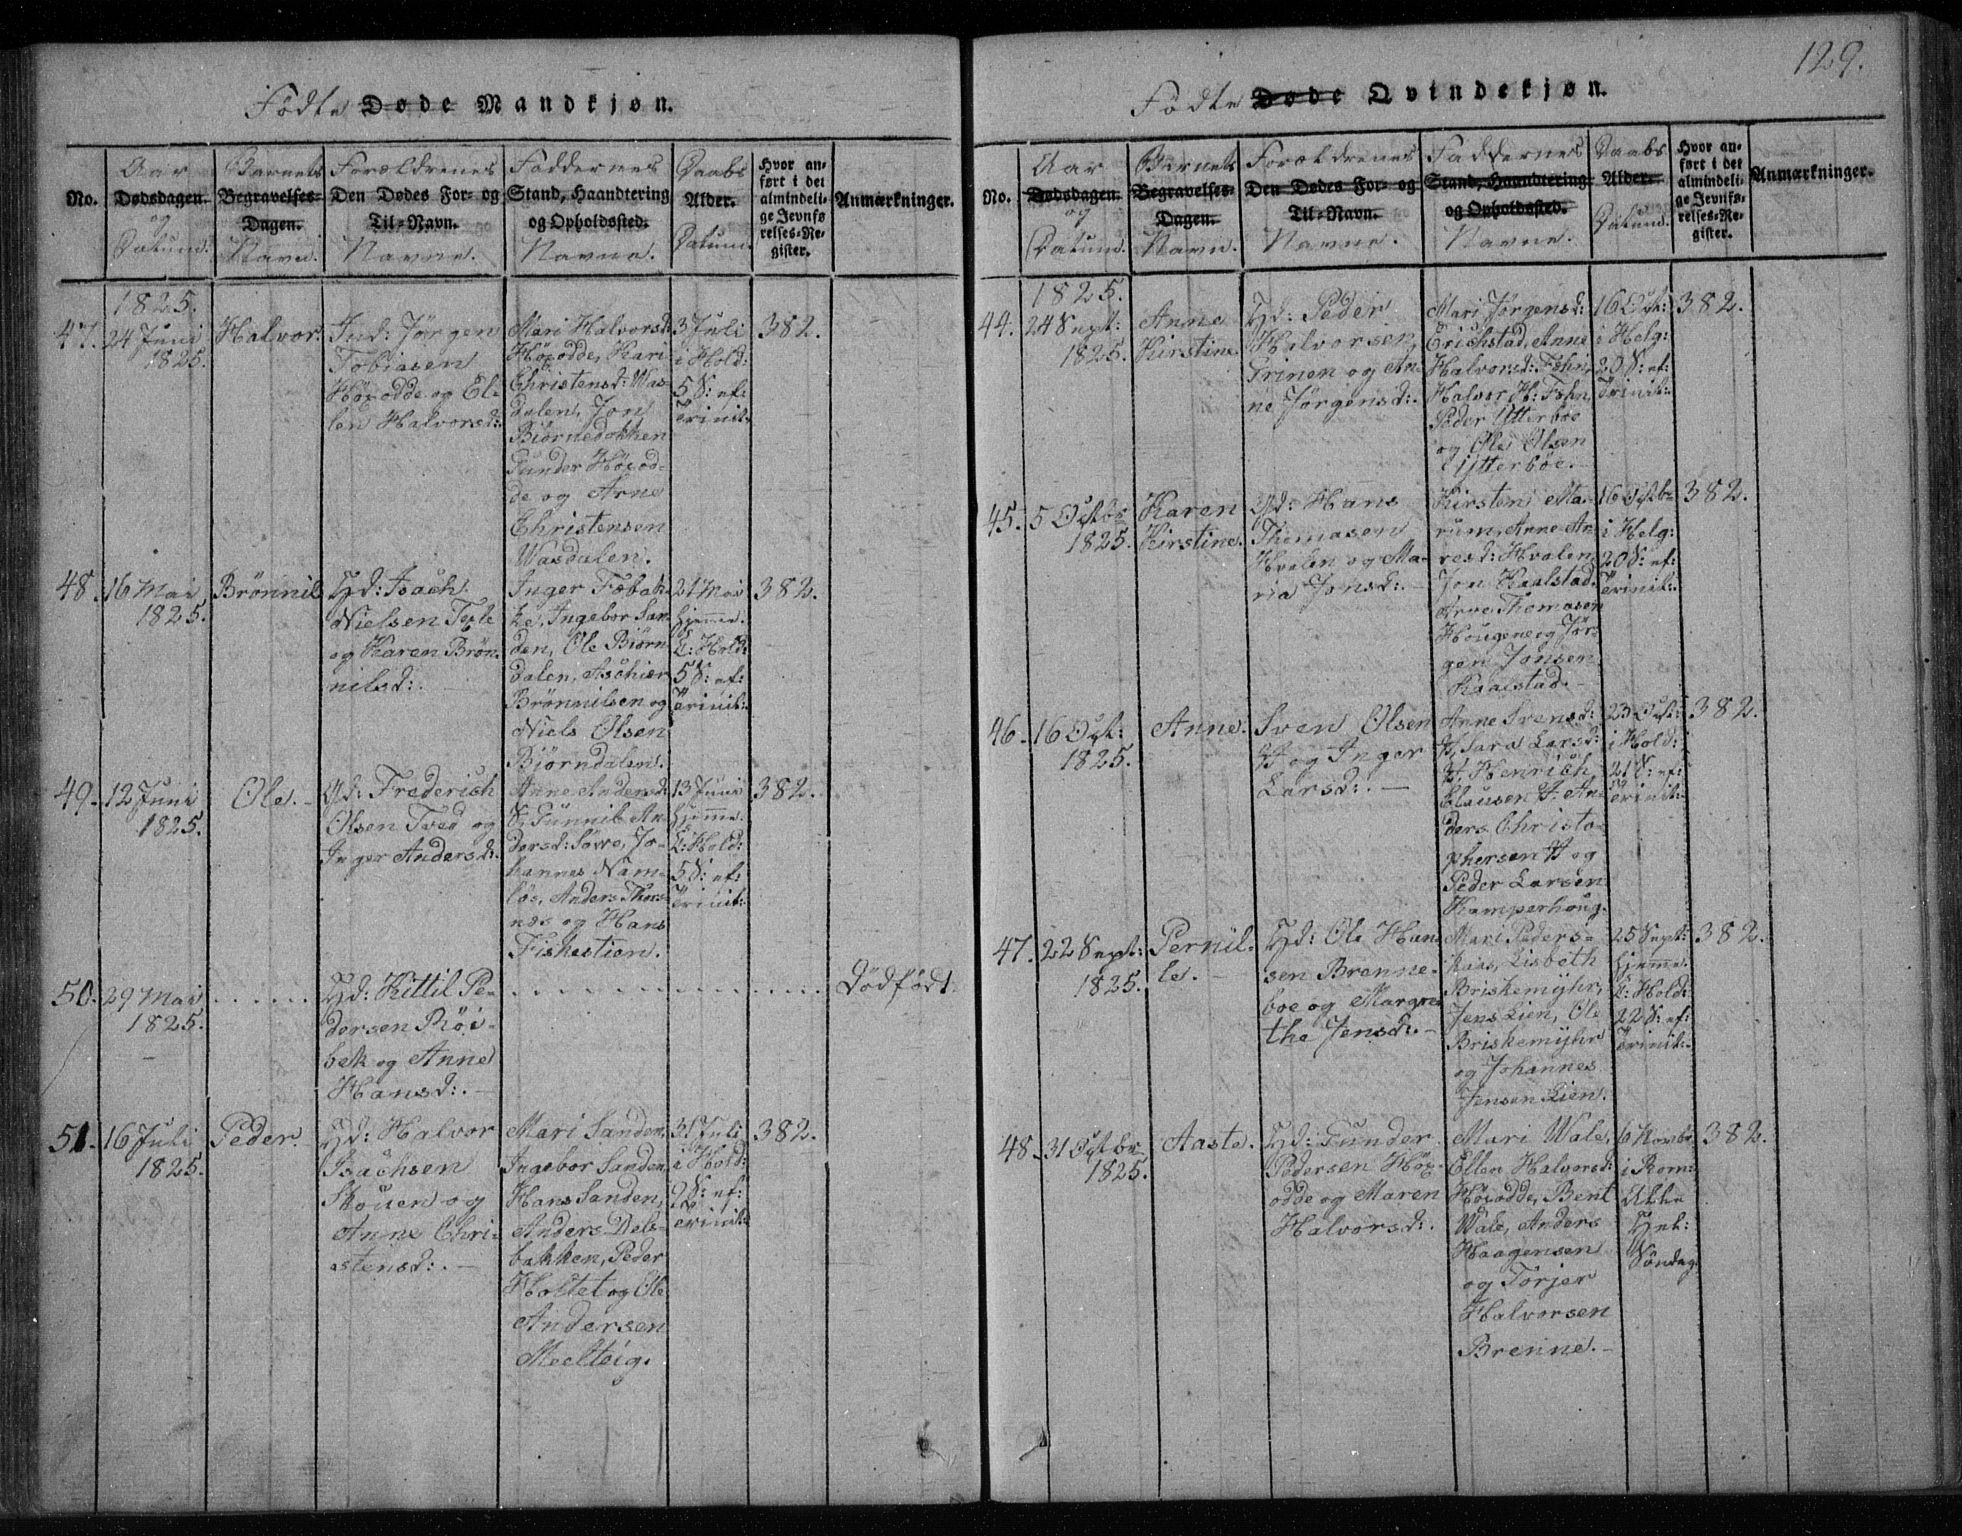 129.
Fødte Døde Mandkjøn.
No.
Aar
Dødsdagen.
og
Datum.
Barnets
Begravelses-
Dagen.
Navn.
Forældrenes
Den Dødes For- og
Til-Navn.
Navne.
Faddernes
Stand, Haandtering
og Opholdssted.
Navne.
Daabs
Alder.
Datum.
Hvor an-
ført i det
almindeli-
ge Jevnfø
relses-Re-
gister.
Anmærkninger.
47.
1825.
24 Juni
1825.
Halvor.
Ind: Jørgen
Tobiasen
Høxodde og El-
len Halvorsd:
Mari Halvorsd:
Høxodde, Kari
Christensd: Was-
dalen, Jon
Biørnedokken
Gunder Høxod-
de og Arne
Christensen
Wasdalen.
3 Juli
i Hold:
5 S: ef:
Trinit:
382.
48.
16 Mai
1825.
Brønnil
Gd: Isach
Nielsen Texle
og Karen Brøn-
nilsd:.
Inger Tobak-
ke, Ingebor San
den, Ole Biørn
dalen, Aschier
Brønnilsen og
Niels Olsen
Biørndalen.
21 Mai
hjemme.
C: Hold:
5 S: ef:
Trinit:
382.
49.
12 Juni
1825.
Ole.
Gd: Frederich
Olsen Tved og
Inger Andersd:
Anne Andersd:
& Gunnil An-
dersd: Søvre, Jo-
hannes Nam-
løs, Anders Thors-
næs og Hans
Fiskestien.
13 Juni
hjemme.
C: Hold:
5 S: ef:
Trinit:
382.
50.
29 Mai
1825.
Gd: Kittil Pe-
dersen Røi-
bek og Anne
Hansd:.
Dødfødt
51.
16 Juli
1825.
Peder.
Gd: Halvor
Isachsen
Skouen og
Anne Chri-
stensd:.
Mari Sanden,
Ingebor Sanden,
Hans Sanden,
Anders Dels-
bakken, Peder
Holtet og Ole
Andersen
Meelteig.
31 Juli
i Hold:
9 S: ef:
Trinit:
382.
Fødte Døde Qvindekjøn.
No.
Aar
Dødsdagen.
og
Datum.
Barnets
Begravelses-
Dagen.
Navn.
Forældrenes
Den Dødes For- og
Til-Navn.
Navne.
Faddernes
Stand, Haandtering
og Opholdssted.
Navne.
Daabs
Alder.
Datum.
Hvor an-
ført i det
almindeli-
ge Jevnfø-
relses-Re-
gister.
Anmærkninger.
44.
1825.
24 Sept:
1825.
Anne
Kirstine
Gd: Peder
Halvorsen
Trinen og An-
ne Jørgensd:.
Mari Jørgensd:
Erichstad, Anne
Halvorsd: Fehn,
Halvor H: Fehn,
Peder Ytterboe
og Ole Olsen
Ytterboe.
16 Oct:
i Helg:
20 S: ef:
Trinit:
382.
45.
5 Octbr
1825.
Karen
Kirstine.
Gd: Hans
Thomasen
Hvalen og Ma-
ria Jonsd:.
Kirsten Ma-
rum, Anne An-
resd: Hvalen,
Jon Kaalstad,
Arve Thomasen
Hougene og Jør-
gen Jonsen
Kaalstad.
16 Octbr
i Helg:
20 S: ef:
Trinit:
382.
46.
16 Oct:
1825.
Anne.
Sven Olsen
H og Inger
Larsd:.
Anne Svensd:
H, Sara Larsd:
H. Henrich
Clausen H. An-
ders Christo-
phersen H og
Peder Larsen
Kamperhoug.
23 Oct:
i Hold:
21 S: ef:
Trinit:
382.
47.
22 Sept:
1825.
Pernil-
le.
Gd: Ole Han-
sen Brenne-
boe og Margre
the Jensd:.
Mari Peders-
Lisbeth
Briskemyhr,
Jens Lien, Ole
Briskemyhr
og Johannes
Jensen Lien.
25 Sept:
hjemme.
C: Hold:
22 S: ef:
Trinit:
382.
48.
31 Octbr
1825.
Aaste.
Gd: Gunder
Pedersen Høx-
odde og Maren
Halvorsd:.
Mari Wale,
Ellen Halvorsd:
Høxodde, Bent
Wale, Anders
Haagensen
og Torjer
Halvorsen
Brenne.
6 Novbr
i Rom:
Alle
Hel:
Søndag
382.